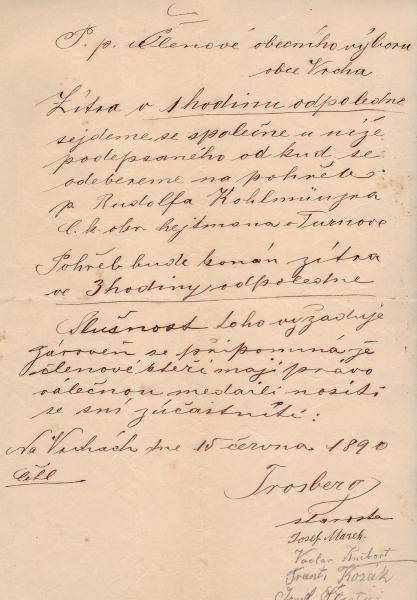 P. p. Členové obecního výboru
obce Vrcha
Zítra o 1 hodinu odpoledne
sejdeme se společne u níže
podepsaného od kud se
odebereme na pohřeb
p. Rudolfa Kohlmünzra
C. k. obr. hejtmana v Turnove
Pohřeb bude konán zítra
ve 3 hodiny odpoledne
Slušnost toho vyžaduje
zároveň se připomíná že
členové kteří mají právo
válečnou medaili nositi
se sní zúčastnítí:
Na Vrchách dne 15 června 1890
Trosberg
starosta
Josef Marek.
Vaclav
Frant. Kozák
Josef